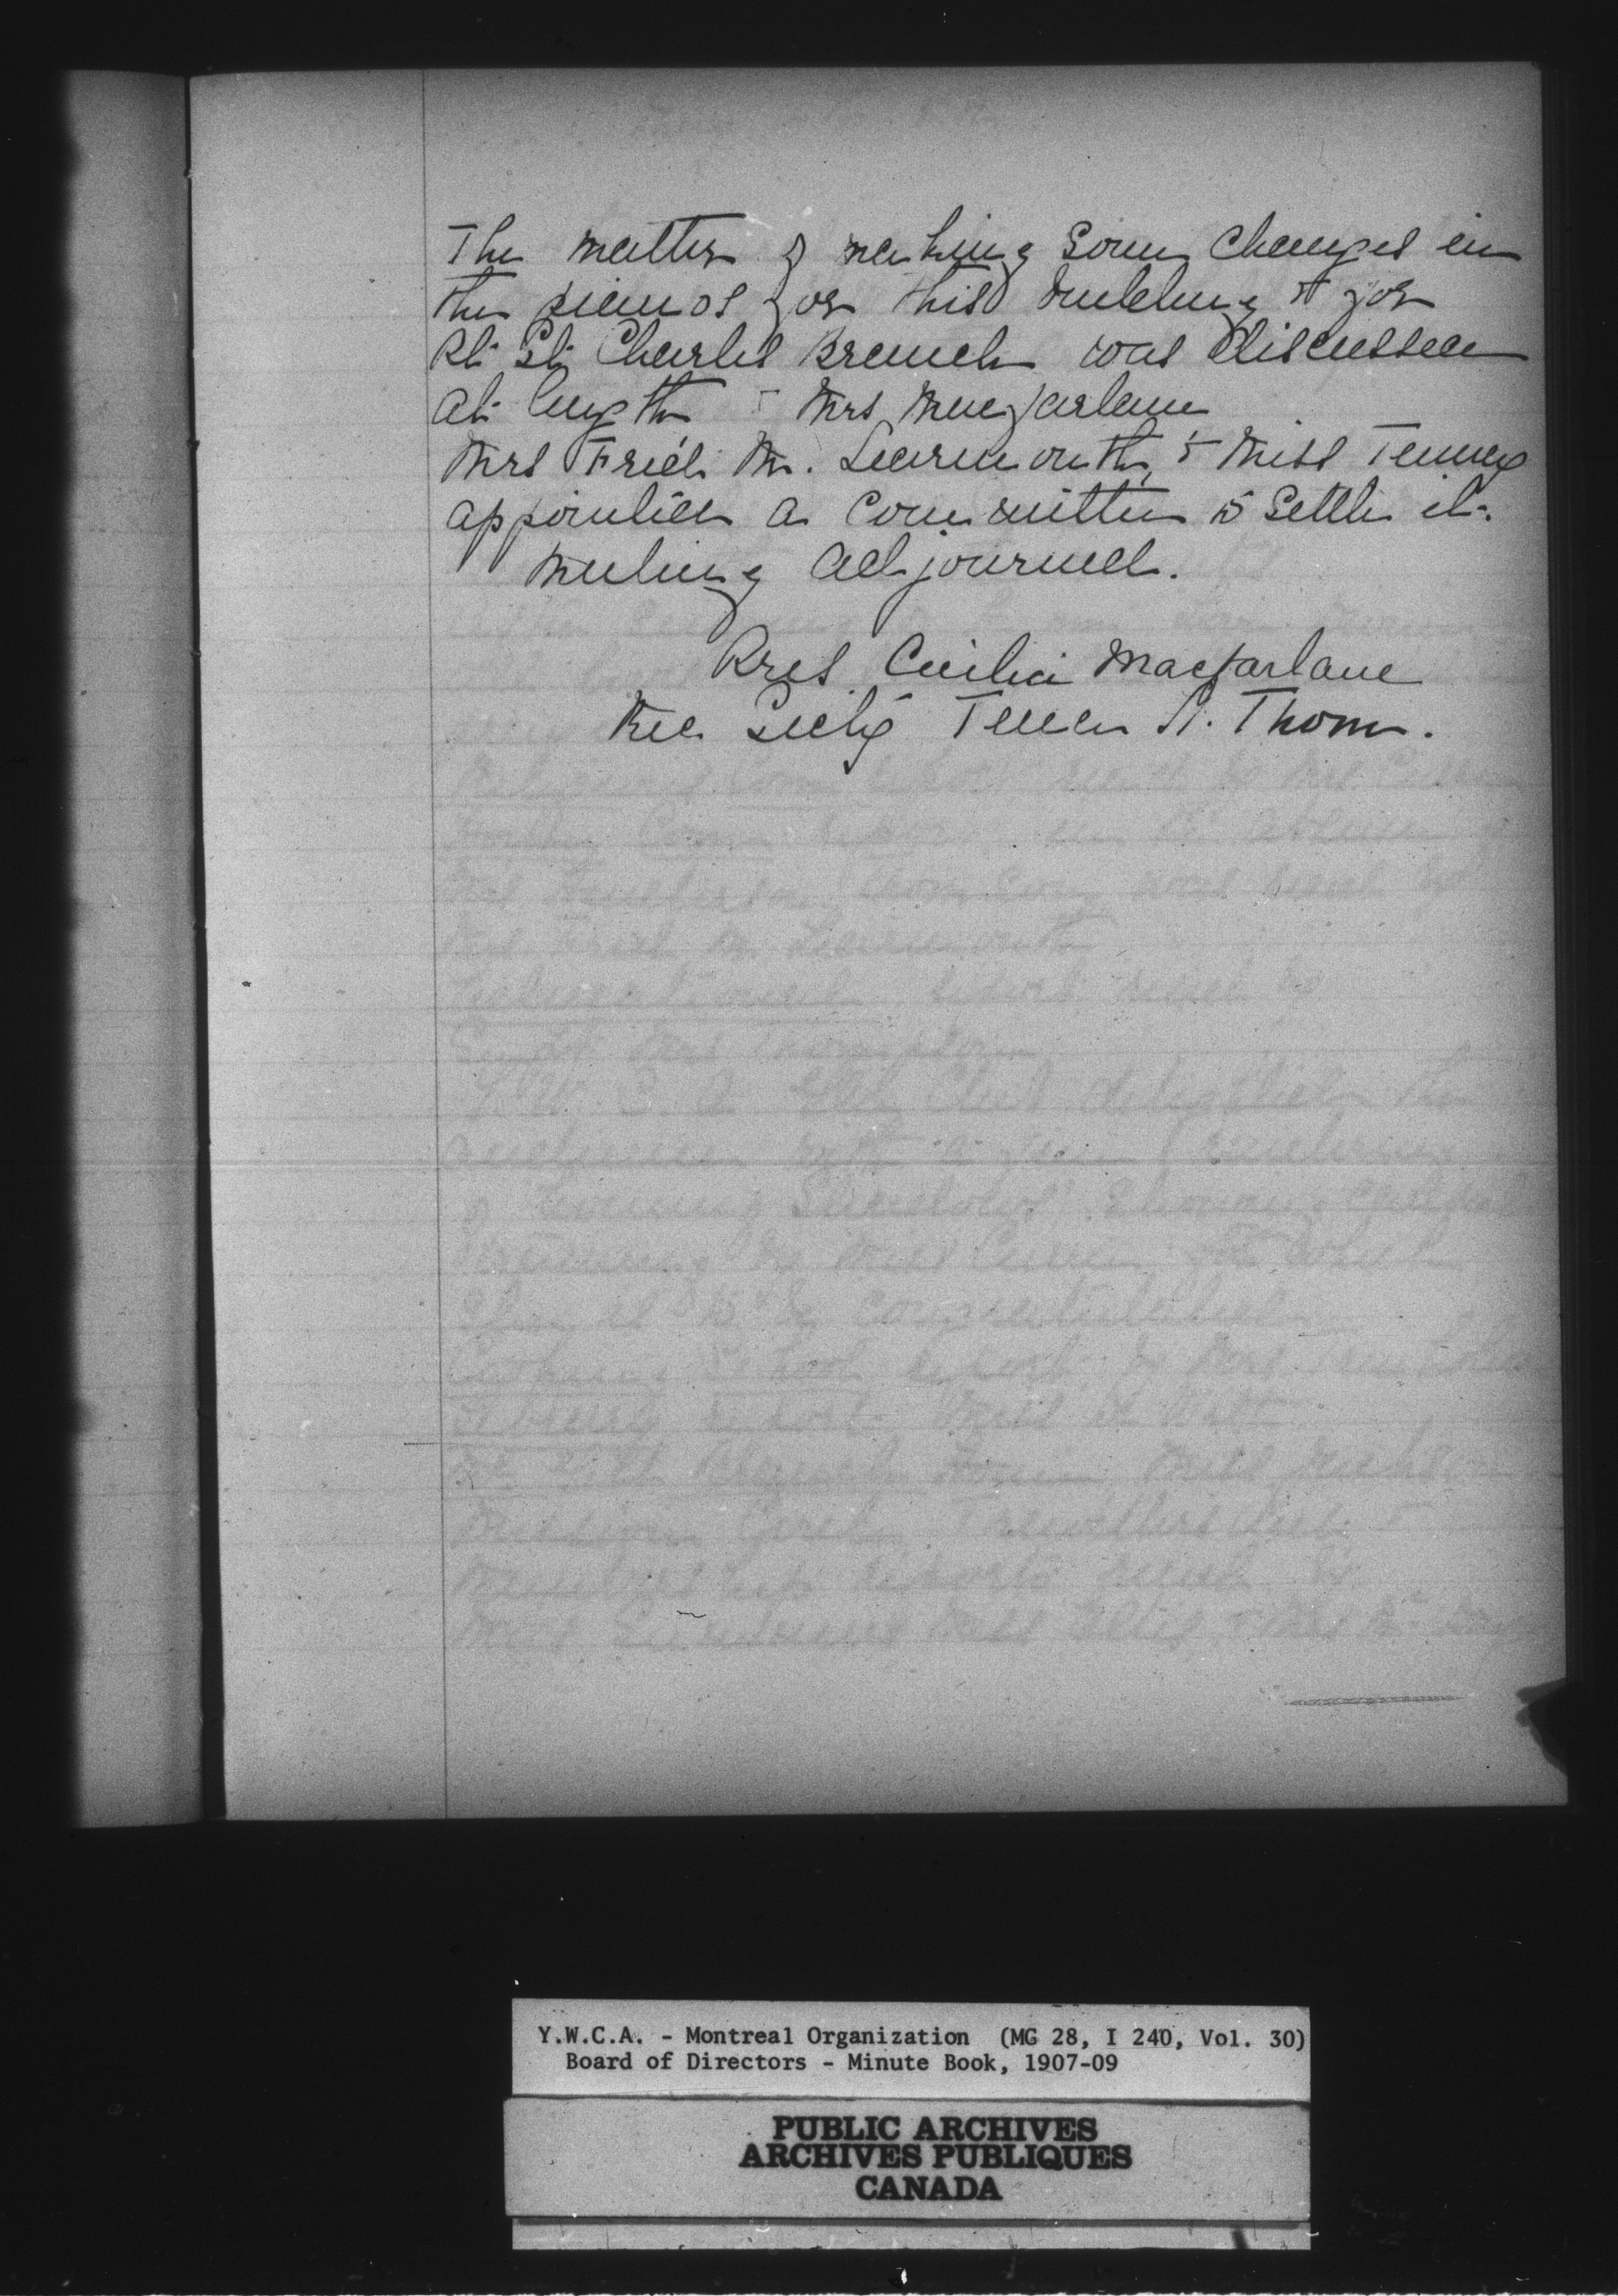 The matter of making some changes in
the pianos for this building & for
Pt. St. Charles Branch was discussed
at length & Mrs Macfarlane
Mrs Fred. M. Learmonth, & Miss Tenney
appointed a Committee to settle it.
Meeting adjourned.
Pres. Cecilia Macfarlane
Rec. Secty A. Thom.
Y.W.C.A. - Montreal Organization (MG 28, I 240, Vol. 30)
Board of Directors - Minute Book, 1907-09
PUBLIC ARCHIVES
ARCHIVES PUBLIQUES
CANADA